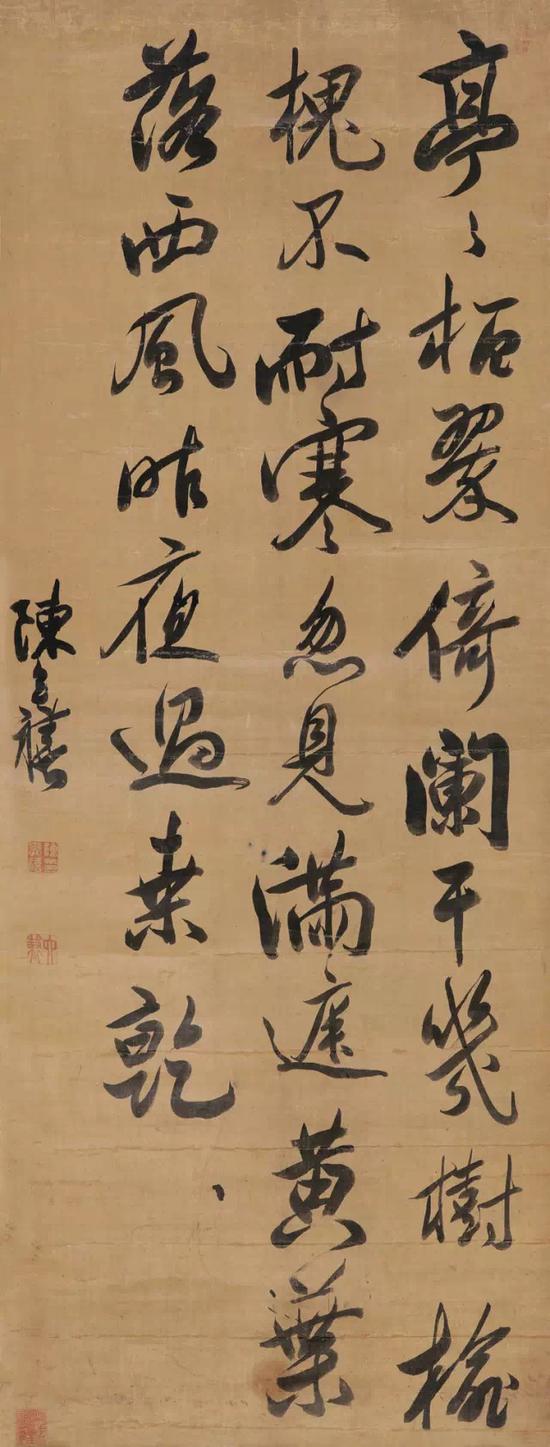 亭〻柏翠倚闌干幾樹榆
槐不耐寒忽見滿庭黃葉
落西風昨夜過桒乾
陳奕禧